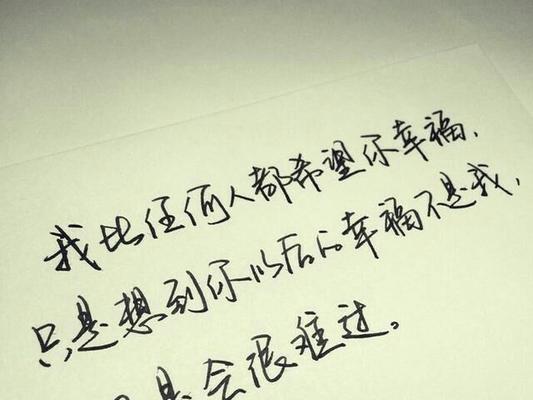 我比任何人都希望你幸福，
只是想到你以后的幸福不是我，
是会很难过。